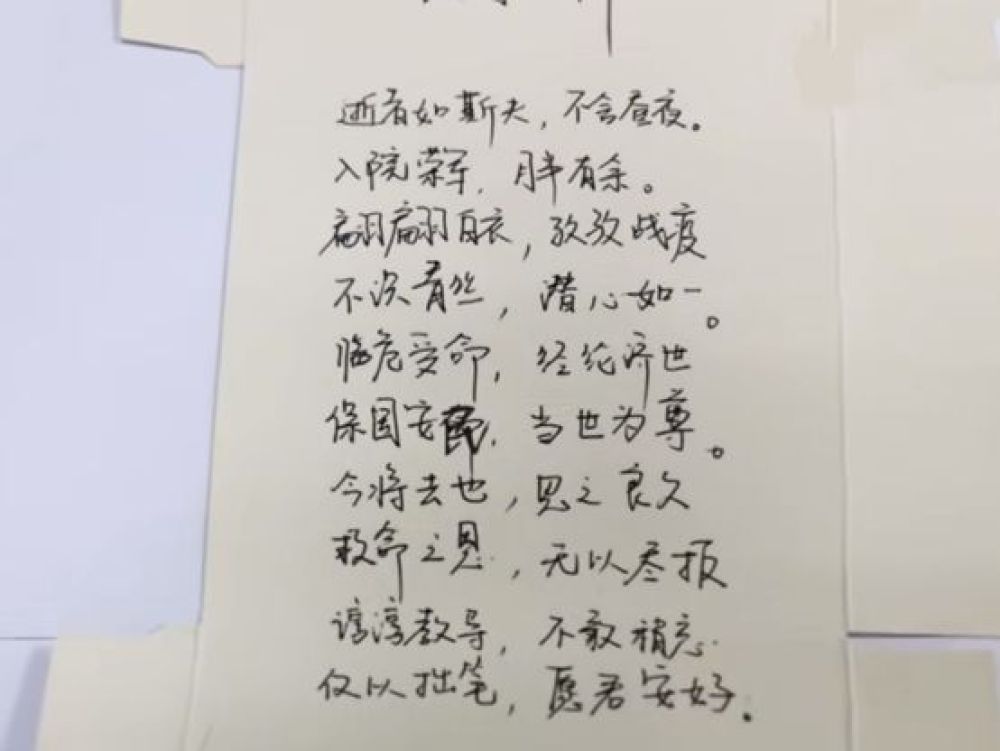 逝者如斯夫，不舍昼夜。
入院荣军，月半有余。
翩翩白衣，孜孜战疫
不识青丝，潜心如一。
临危受命，经纶济世
保国安民，当世为尊。
今将去也，思之良久
救命之恩，无以尽报
谆谆教导，不敢稍忘
仅以拙笔，愿君安好。